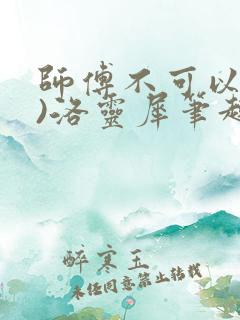 師傅不可以
)洛靈犀筆趣
醉寒玉
未经同意禁止转载